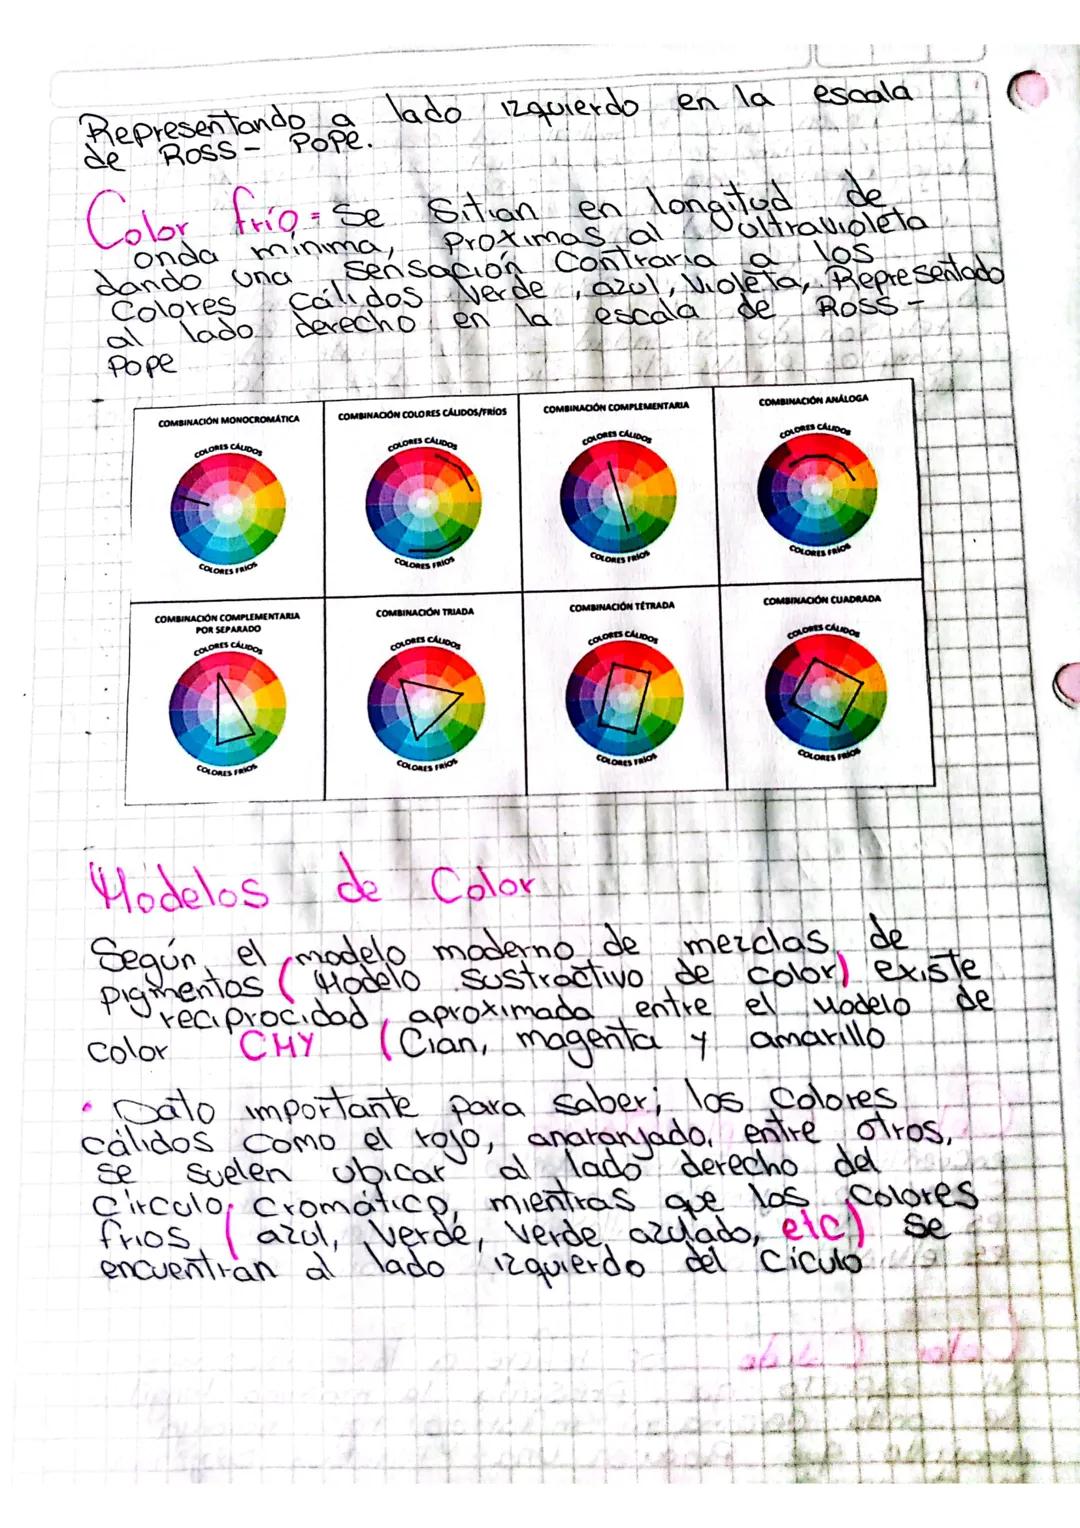 Representando a lado izquierdo en la escala
de Ross- Pope.
Color frío = Se Sitian en longitud de
onda mínima, Proximas al ultravioleta
dando una sensación Contraria a los
Colores Cálidos Verde, azul, Violeta, Representado
al lado derecho en la escala de Ross-
Pope
COMBINACIÓN MONOCROMÁTICA
COLORES CÁLIDOS
COLORES FRIOS
COMBINACIÓN COLORES CÁLIDOS/FRÍOS
COLORES CÁLIDOS
COLORES FRIOS
COMBINACIÓN COMPLEMENTARIA
COLORES CÁLIDOS
COLORES FRIOS
COMBINACIÓN ANÁLOGA
COLORES CÁLIDOS
COLORES FRIOS
COMBINACIÓN COMPLEMENTARIA
POR SEPARADO
COLORES CÁLIDOS
COLORES FRIOS
COMBINACIÓN TRIADA
COLORES CÁLIDOS
COLORES FRIOS
COMBINACIÓN TÉTRADA
COLORES CÁLIDOS
COLORES FRIOS
COMBINACIÓN CUADRADA
COLORES CÁLIDOS
COLORES FRIOS
Modelos de Color
Según el modelo moderno de mezclas de
pigmentos (Modelo sustractivo de color) existe
reciprocidad aproximada entre el modelo de
color CMY (Cian, magenta y amarillo
• Dato importante para saber; los Colores
cálidos como el rojo, anaranjado, entre otros,
se suelen ubicar al lado derecho del
Círculo Cromático, mientras que los Colores
fríos (azul, Verde, Verde azulado, etc) se
encuentran al lado izquierdo del Ciculo